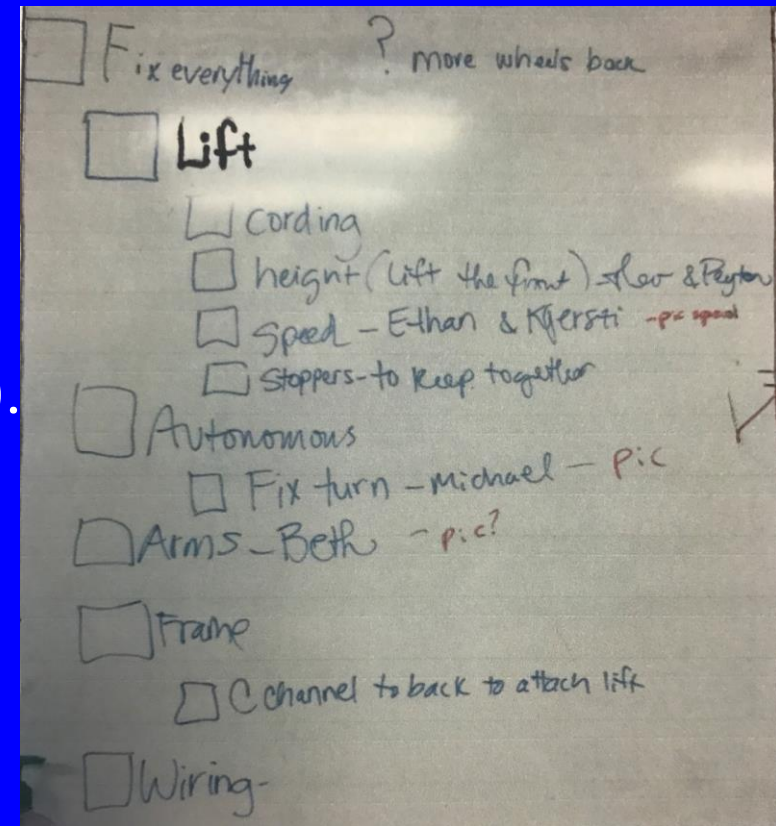 Fix everything ? more wheels back
Lift
cording
height (Lift the front) & Peyton
Speed - Ethan & Kjersti - pic
Stoppers - to keep together
Autonomous
Fix turn - michael - pic
Arms - Beth - pic?
Frame
C channel to back to attach lift
Wiring -